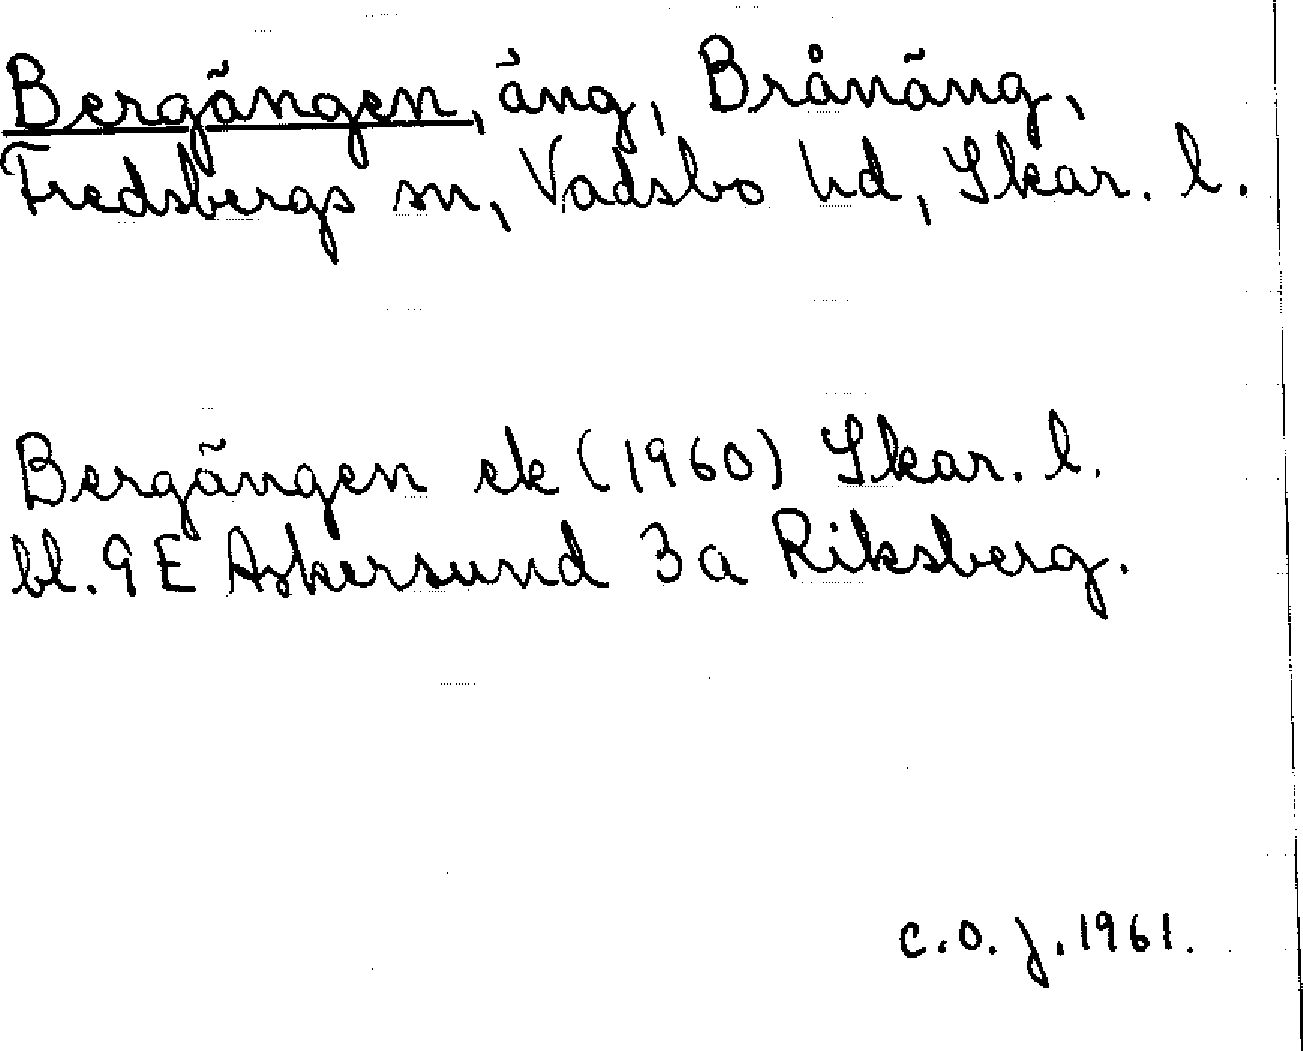 Bergängen, äng, Brånäng,
Fredsbergs sn, Vadsbo hd, Skar. l.
Bergängen ek (1960) Skar. l.
bl. 9 E Askersund 3a Riksberg.
C.O. J. 1961.